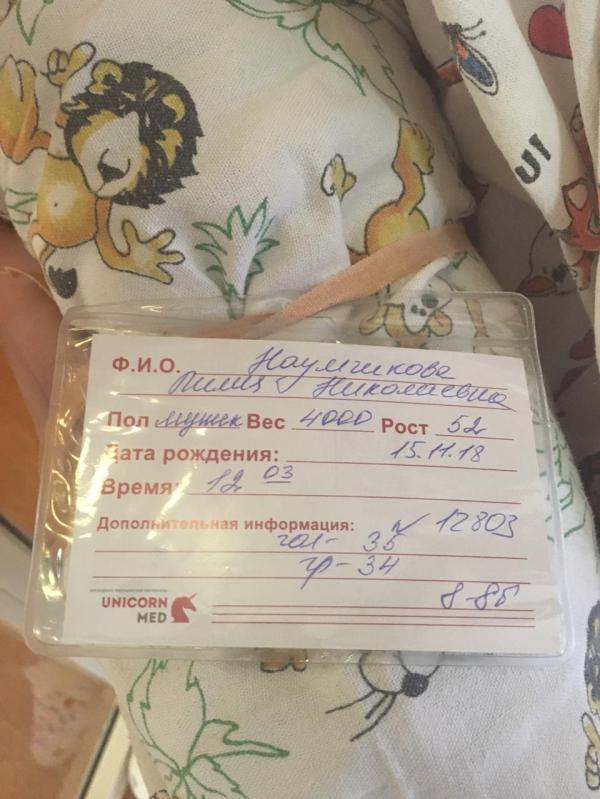 Ф.И.О. Наумчикова
Лилия Николаевна
Пол мужск Вес 4000 Рост 52
Дата рождения: 15.11.18
Время: 12 03
Дополнительная информация: N 12803
гол- 35
гр- 34
8-8б
UNICORN
MED
UI